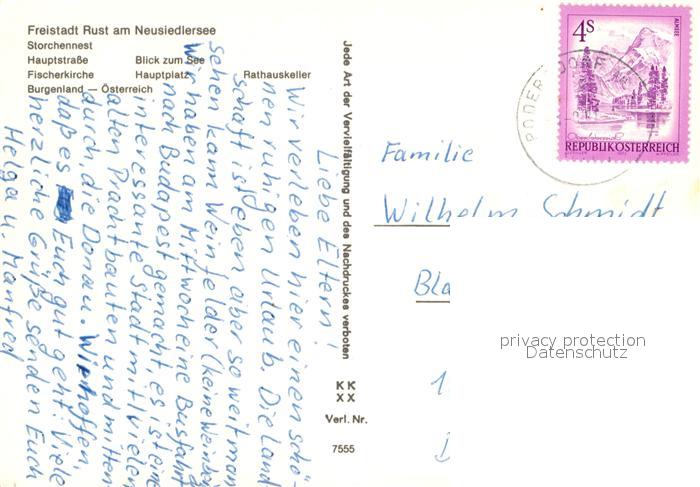 Freistadt Rust am Neusiedlersee
Storchennest
Hauptstraße Blick zum See
Fischerkirche Hauptplatz Rathauskeller
Burgenland — Österreich
Liebe Eltern!
Wir verleben hier einen schö-
nen ruhigen Urlaub. Die Land
schaft ist eben aber so weit man
sehen kann Weinfelder (keine Weinberge
Wir haben am Mittwoch eine Busfahrt
nach Budapest gemacht, es ist eine
interessante Stadt mit vielen
alten Prachtbauten und mitten
durch die Donau. Wir hoffen,
daß es Euch gut geht. Viele
herzliche Grüße senden Euch
Helga u. Manfred
Jede Art der Vervielfältigung und des Nachdruckes verboten
KK
XX
Verl. Nr.
7555
4S
ALMSEE
REPUBLIK ÖSTERREICH
Familie
Wilhelm Schmidt
Bla
1
privacy protection
Datenschutz